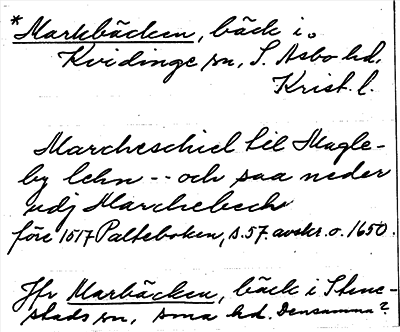 *Markbäcken, bäck i.
Kvidinge sn, S. Åsbo hd.
Krist. l.
Marcheschiel til Magle-
by lehn -- och saa neder
udj Marchebech
före 1517 Palteboken, s. 57. avskr. o. 1650.
Jfr Marbäcken, bäck i Stene-
stads sn, sma hd. Densamma?